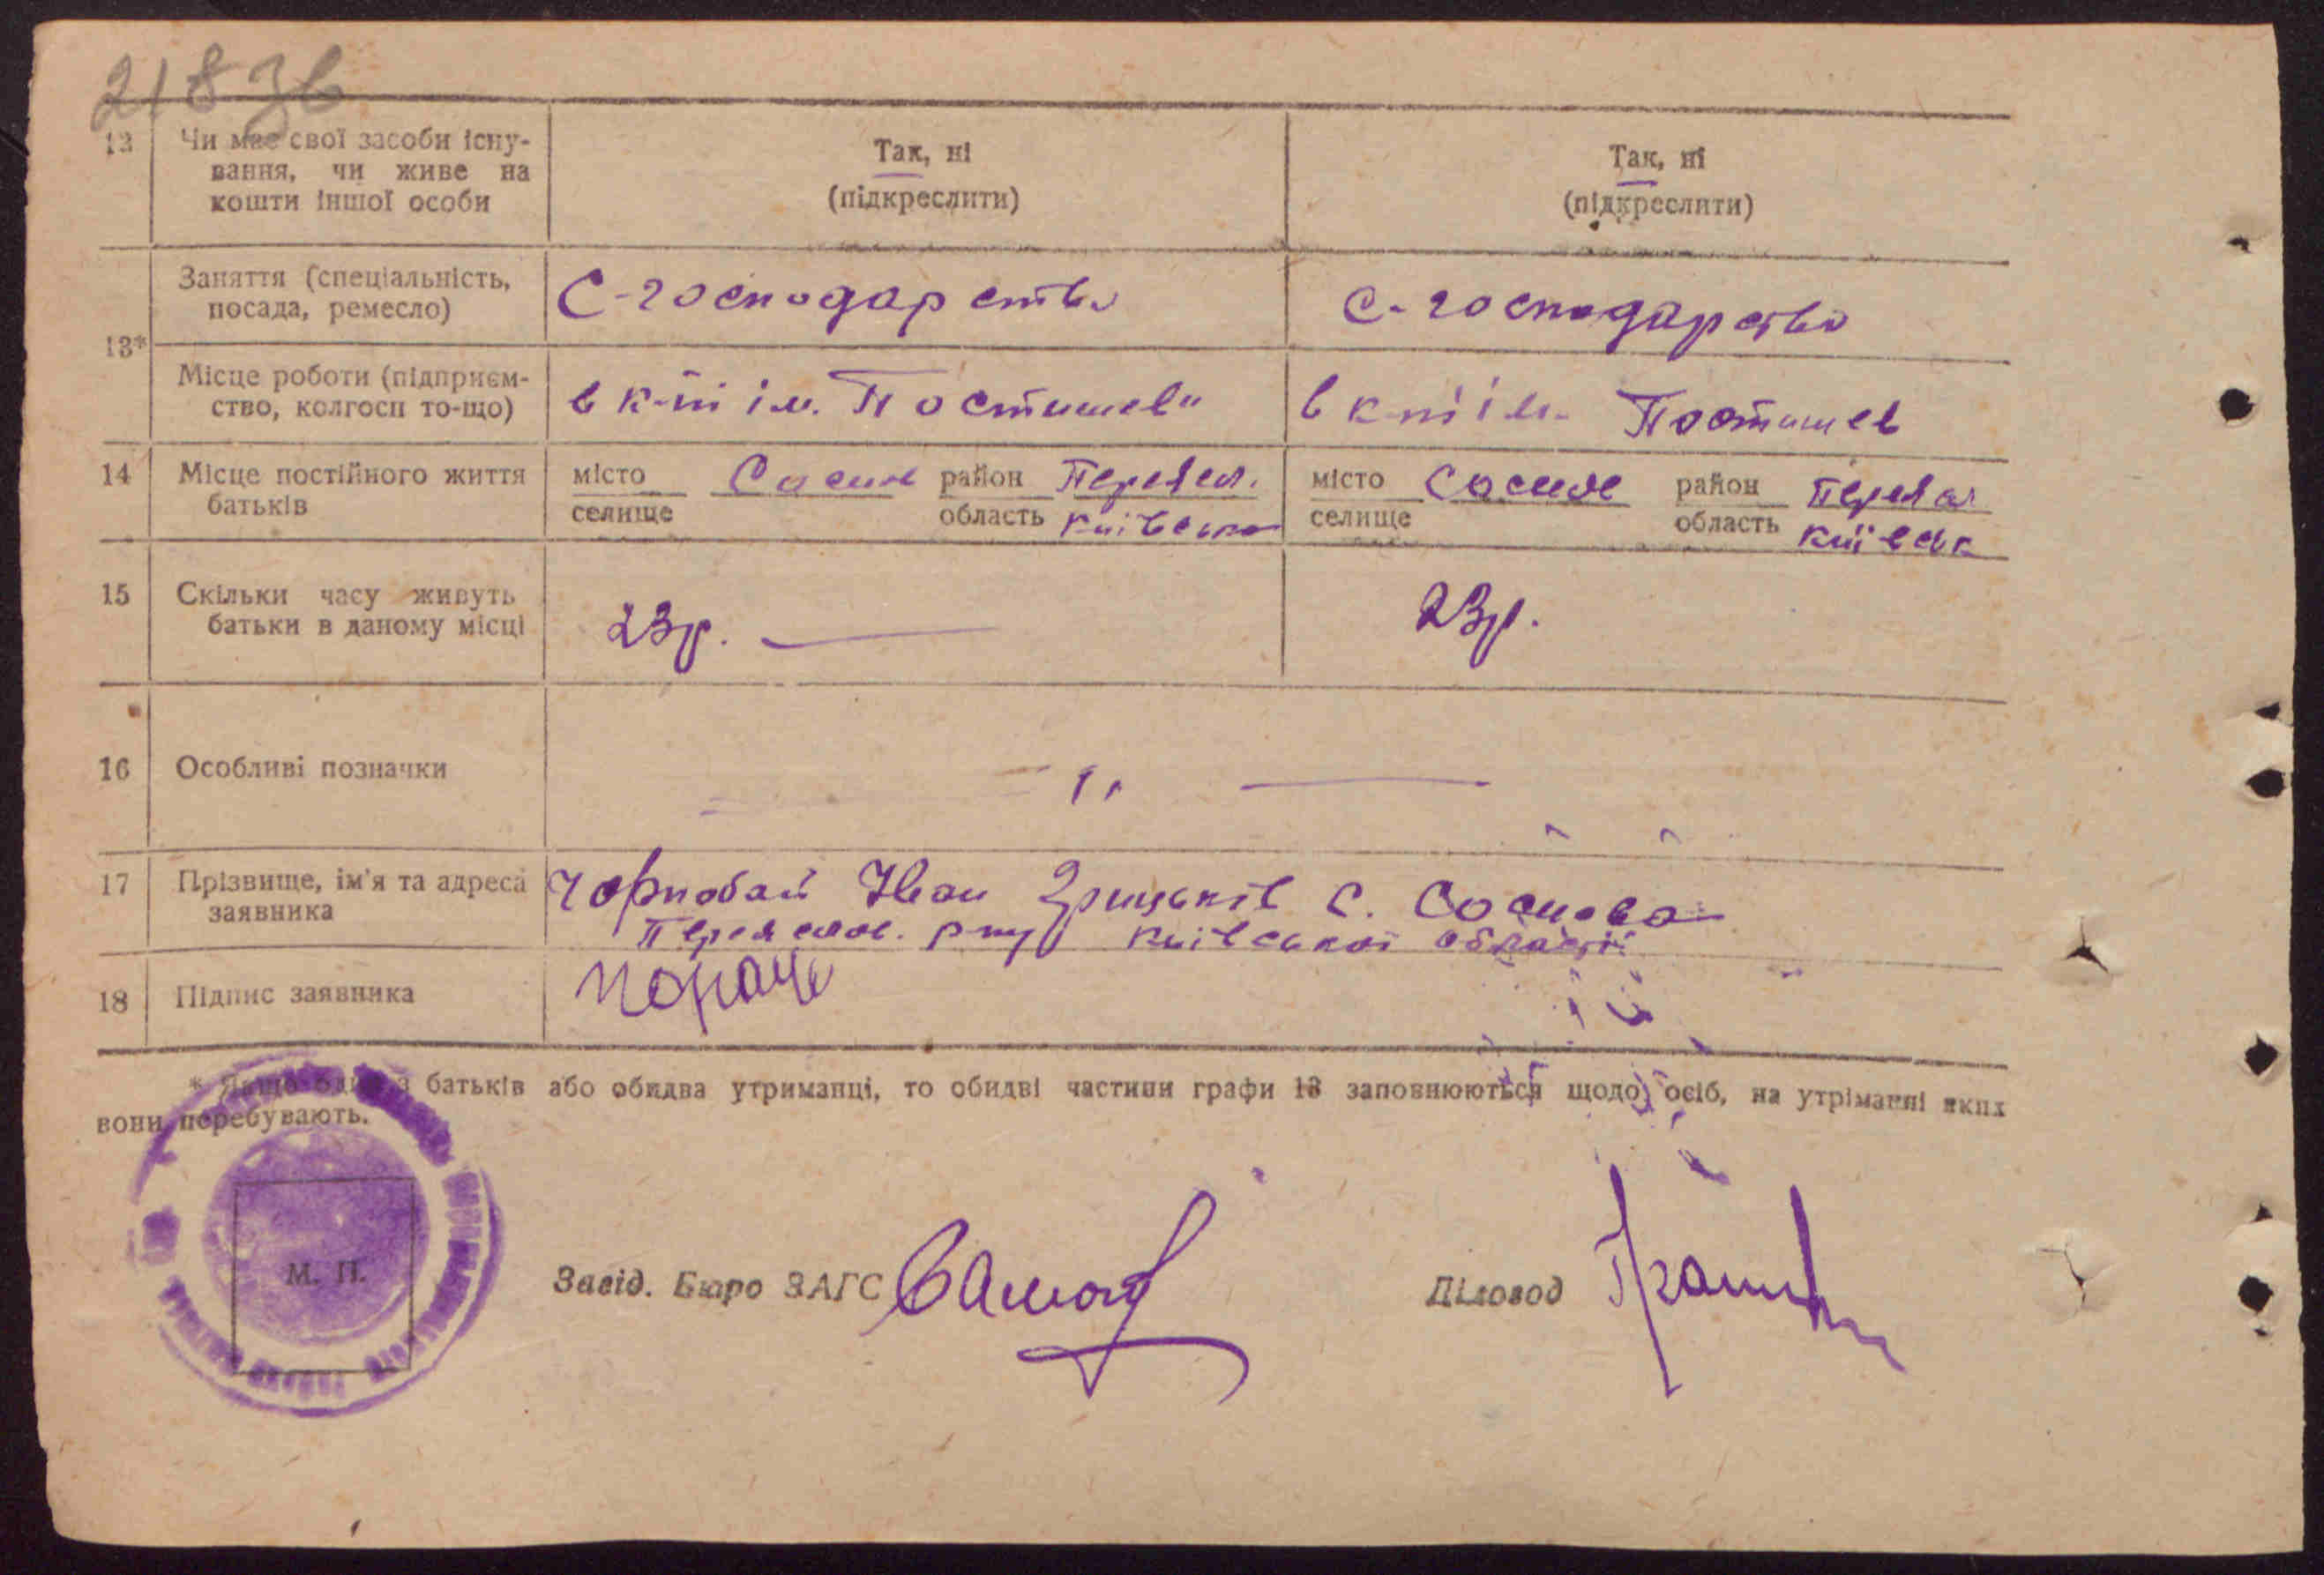 21836
12 Чи має свої засоби існу-
вання, чи живе на
кошти іншої особи
Так, ні
(підкреслити)
Так, ні
(підкреслити)
13*
Заняття (спеціальність,
посада, ремесло)
С-господарство
С-господарство
Місце роботи (підприєм-
ство, колгосп то-що)
в к-пі ім. Постишева
в к-пі ім. Постишев
14 Місце постійного життя
батьків
місто
селище
район Переясл.
область Київська
місто
селище
район Переял
область Київськ
15 Скільки часу живуть
батьки в даному місці
23р.
23р.
16 Особливі позначки
17 Прізвище, ім'я та адреса
заявника
Чорнобай Іван с. Соснова
Переяслов. р-ну Київської області
18 Підпис заявника
* Якщо один з батьків або обидва утриманці, то обидві частини графи 13 заповнюються щодо осіб, на утріманні яких
вони перебувають.
М. П.
Завід. Бюро ЗАГС
Діловод